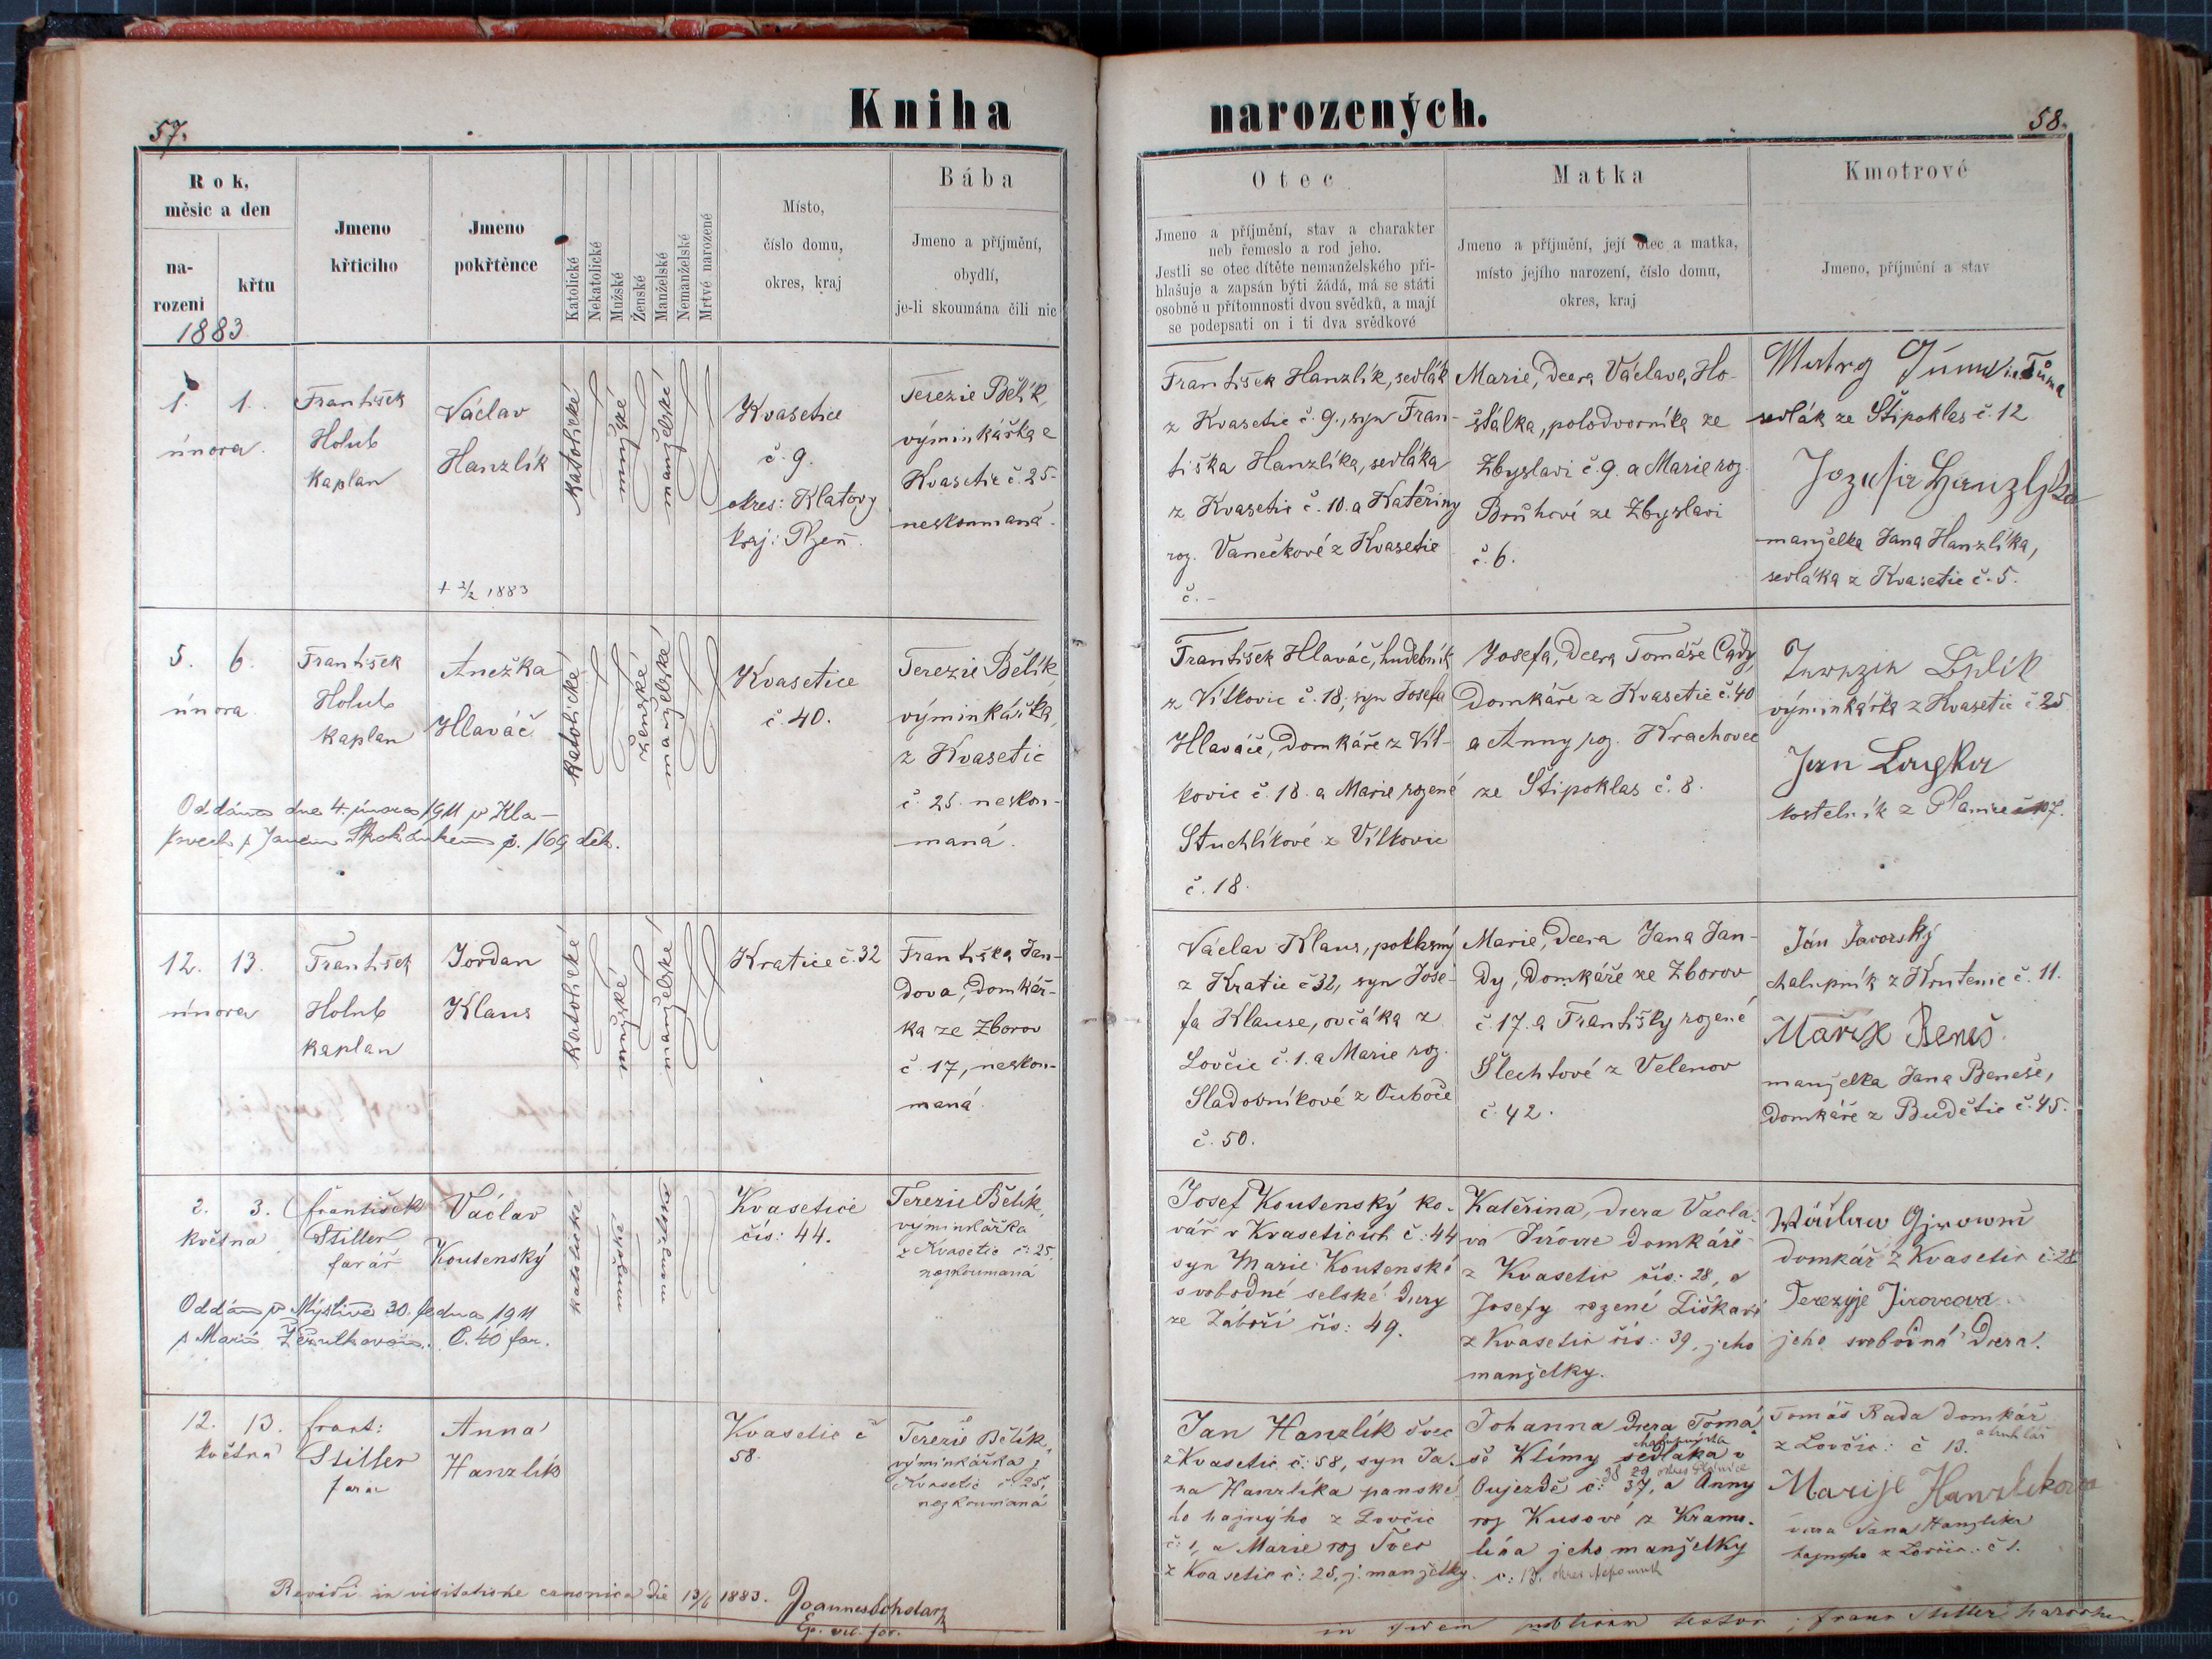 Kniha narozených.
57.
58.
Rok,
měsíc a den
na-
rozeni
křtu
1883
Jmeno
křticího
Jmeno
pokřtěnce
Katolické
Nekatolické
Mužské
Ženské
Manželské
Nemanželské
Mrtvé narozené
Místo,
číslo domu,
okres, kraj
Bába
Jmeno a příjmění,
obydlí,
je-li skoumána čili nic
Otec
Jmeno a příjmění, stav a charakter
neb řemeslo a rod jeho.
Jestli se otec dítěte nemanželského při-
hlašuje a zapsán býti žádá, má se státi
osobně u přítomnosti dvou svědků, a mají
se podepsati on i ti dva svědkové
Matka
Jmeno a příjmění, její otec a matka,
místo jejího narození, číslo domu,
okres, kraj
Kmotrové
Jmeno, příjmění a stav
1. 1.
února
František
Holub
kaplan
Václav
Hanzlík
+ 2/2 1883
katolické
mužské
manželské
Kvasetice
č. 9.
okres: Klatovy
kraj: Plzeň.
Terezie Bělík,
výminkářka z
Kvasetic č. 25.
neskoumaná.
František Hanzlík, sedlák
z Kvasetic č. 9., syn Fran-
tiška Hanzlíka, sedláka
z Kvasetic č. 10. a Kateřiny
roz. Vaněčkové z Kvasetic
č. -
Marie, dcera Václava Ho-
šťálka, polodvorníka ze
Zbyslavi č. 9. a Marie roz.
Brůhové ze Zbyslavi
č. 6.
Tůma
sedlák ze Štipoklas č. 12
manželka Jana Hanzlíka,
sedláka z Kvasetic č. 5.
5. 6.
února
František
Holub
kaplan
Anežka
Hlaváč
katolické
ženské
manželské
Kvasetice
č. 40.
Terezie Bělík,
výminkářka,
z Kvasetic
č. 25. neskou-
maná.
Oddána dne 4. února 1911 v Kla-
tovech s Janem
169 děk.
František Hlaváč, hudebník
z Vítkovic č. 18, syn Josefa
Hlaváče, domkáře z Vít-
kovic č. 18. a Marie rozené
Stuchlíkové z Vítkovic
č. 18.
Josefa, dcera Tomáše Cády,
domkáře z Kvasetic č. 40
a Anny roz. Krachovec
ze Štipoklas č. 8.
Bělík
výminkářka z Kvasetic č. 25
Jan
kostelník z Plánice
12. 13.
února
František
Holub
kaplan
Jordan
Klaus
katolické
mužské
manželské
Kratice č. 32
Františka Jan-
dova, domkář-
ka ze Zborov
č. 17, neskou-
maná.
Václav Klaus, poklasný
z Kratic č 32, syn Jose-
fa Klause, ovčáka z
Lovčic č. 1. a Marie roz.
Sladovníkové z Ouboče
č. 50.
Marie, dcera Jana Jan-
dy, domkáře ze Zborov
č. 17. a Františky rozené
Šlechtové z Velenov
č. 42.
Ján Javorský
chalupník z Krutenic č. 11.
Marie Beneš.
manželka Jana Beneše,
domkáře z Budětic č. 45.
2. 3.
května
František
Stiller
farář
Václav
Koutenský
katolické
mužské
manželské
Kvasetice
čís: 44.
Terezie Bělík,
výminkářka
z Kvasetic č: 25.
neskoumaná
Oddán v Myslívě 30. ledna 1911
s Marií
C. 40 far.
Josef Koutenský ko-
vář v Kvaseticích č: 44
syn Marie Koutenské
svobodné selské dcery
ze Záboří čís: 49.
Kateřina, dcera Václa-
va Jírovce domkáře
z Kvasetic čís: 28, a
Josefy rozené Liškové
z Kvasetic čís: 39, jeho
manželky.
domkář z Kvasetic č: 28
Terezyje Jirovcova
jeho svobodná dcera.
12. 13.
května
frant:
Stiller
farář
Anna
Hanzlík
Kvasetic č
58.
Terezie Bělík,
výminkářka z
Kvasetic č: 25,
neskoumaná
Jan Hanzlík švec
z Kvasetic č: 58, syn Ja-
na Hanzlíka panské-
ho hajného z Lovčic
č: 1, a Marie roz Tver
z Kvasetic č: 25, j. manželky.
Johanna dcera Tomá-
še Klímy sedláka v
Oujezdě č: 37, a Anny
roz Kusové z Kramo-
lína jeho manželky
č: 13. okres Nepomuk
Tomáš Rada domkář
a truhlář
z Lovčic: č 13.
Marije Hanzlikova
dcera Jana Hanzlíka
hajného z Lovčic: č 1.
Revidi in visitatione canonica die 13/6 1883. Joannes
Ep. vic. for.
in fidem publicam testor: Franc Stiller parochus